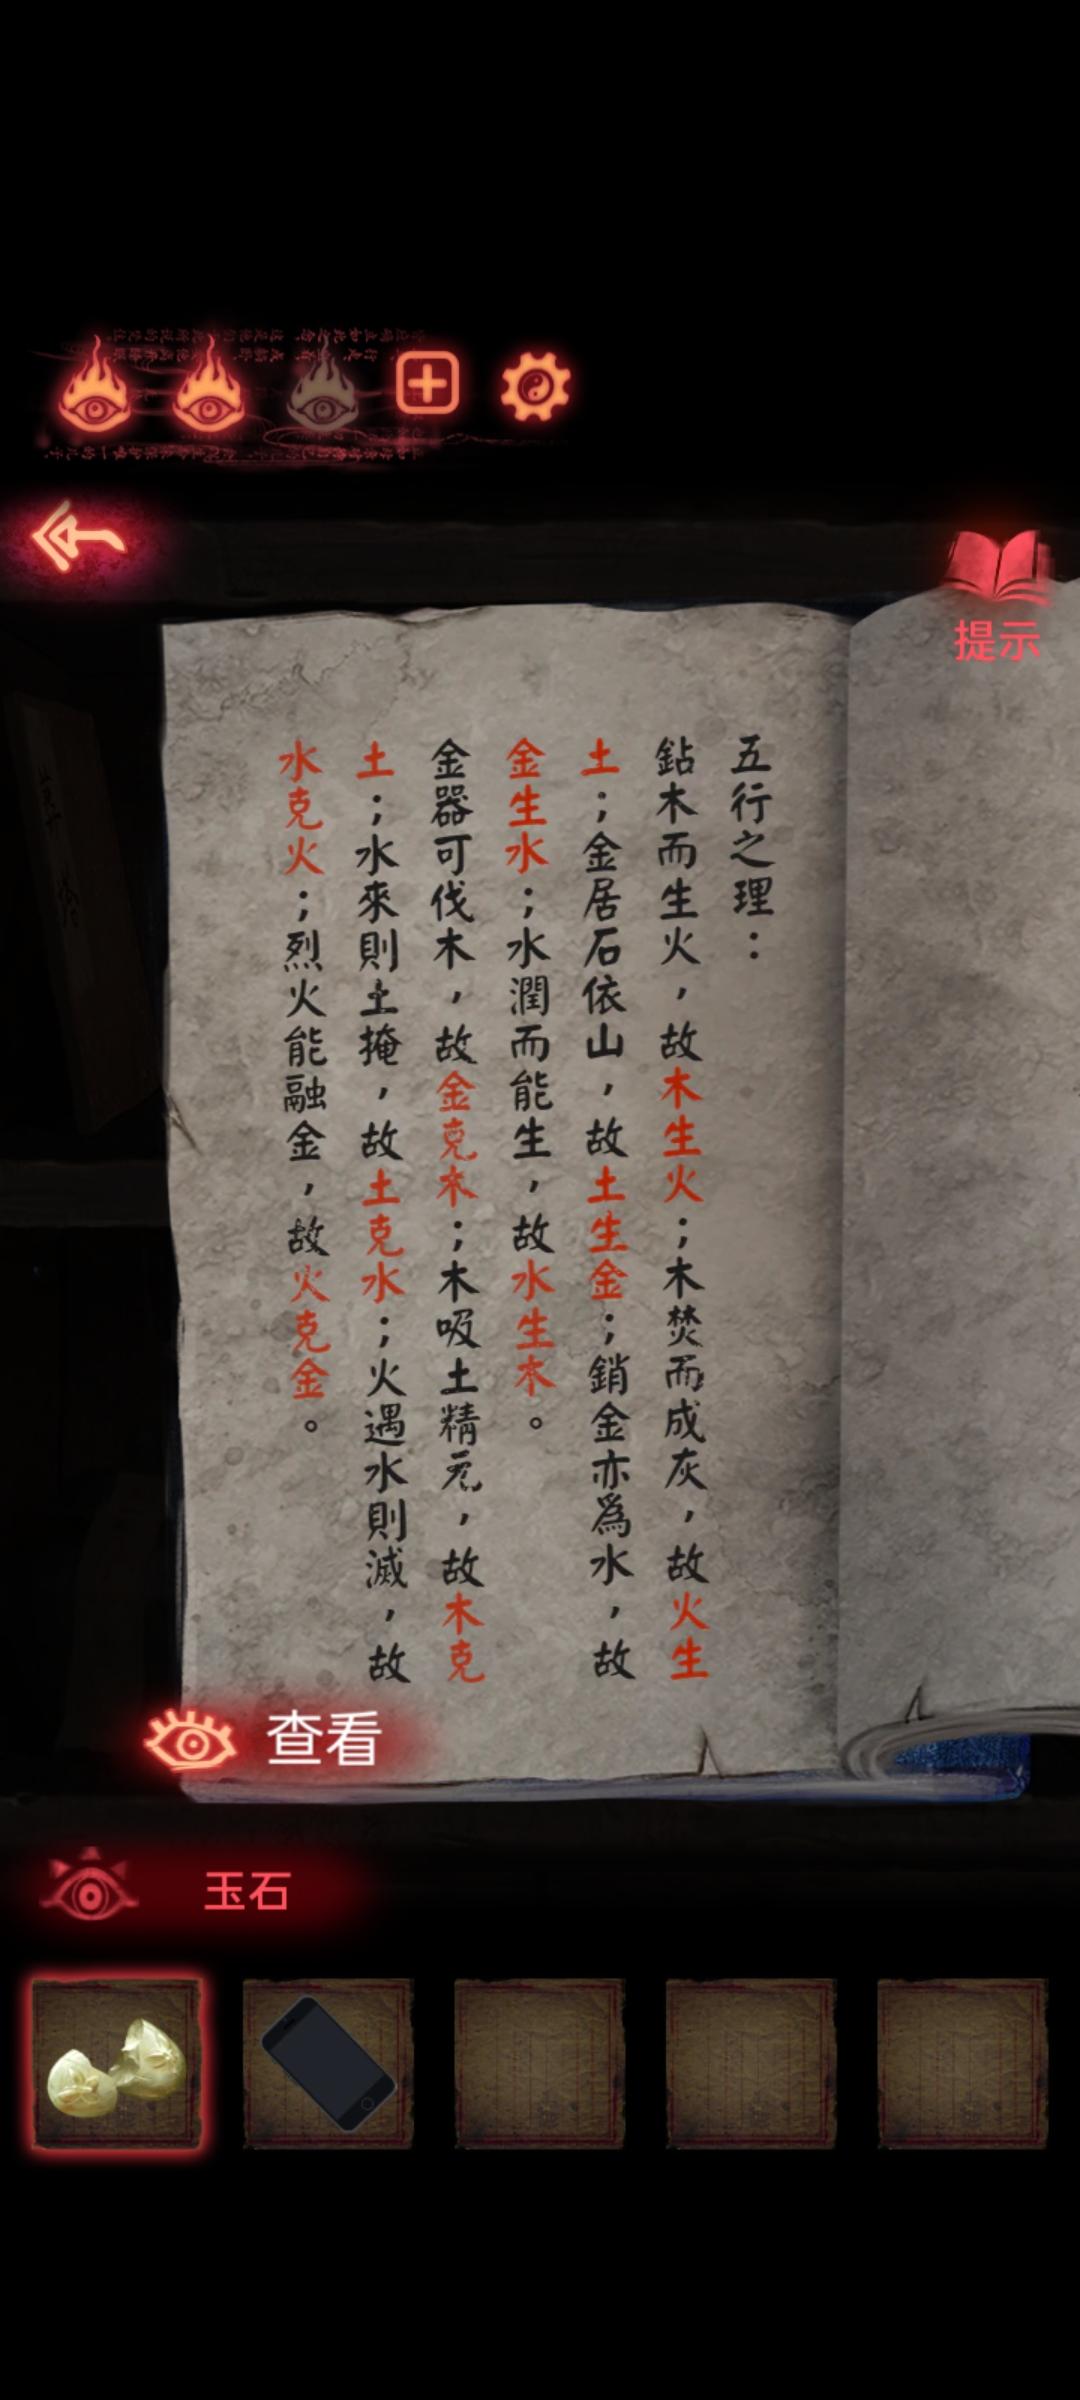 提示
五行之理：
鉆木而生火，故木生火；木焚而成灰，故火生
土；金居石依山，故土生金；銷金亦爲水，故
金生水；水潤而能生，故水生木。
金器可伐木，故金克木；木吸土精元，故木克
土；水來則土掩，故土克水；火遇水則滅，故
水克火；烈火能融金，故火克金。
查看
玉石